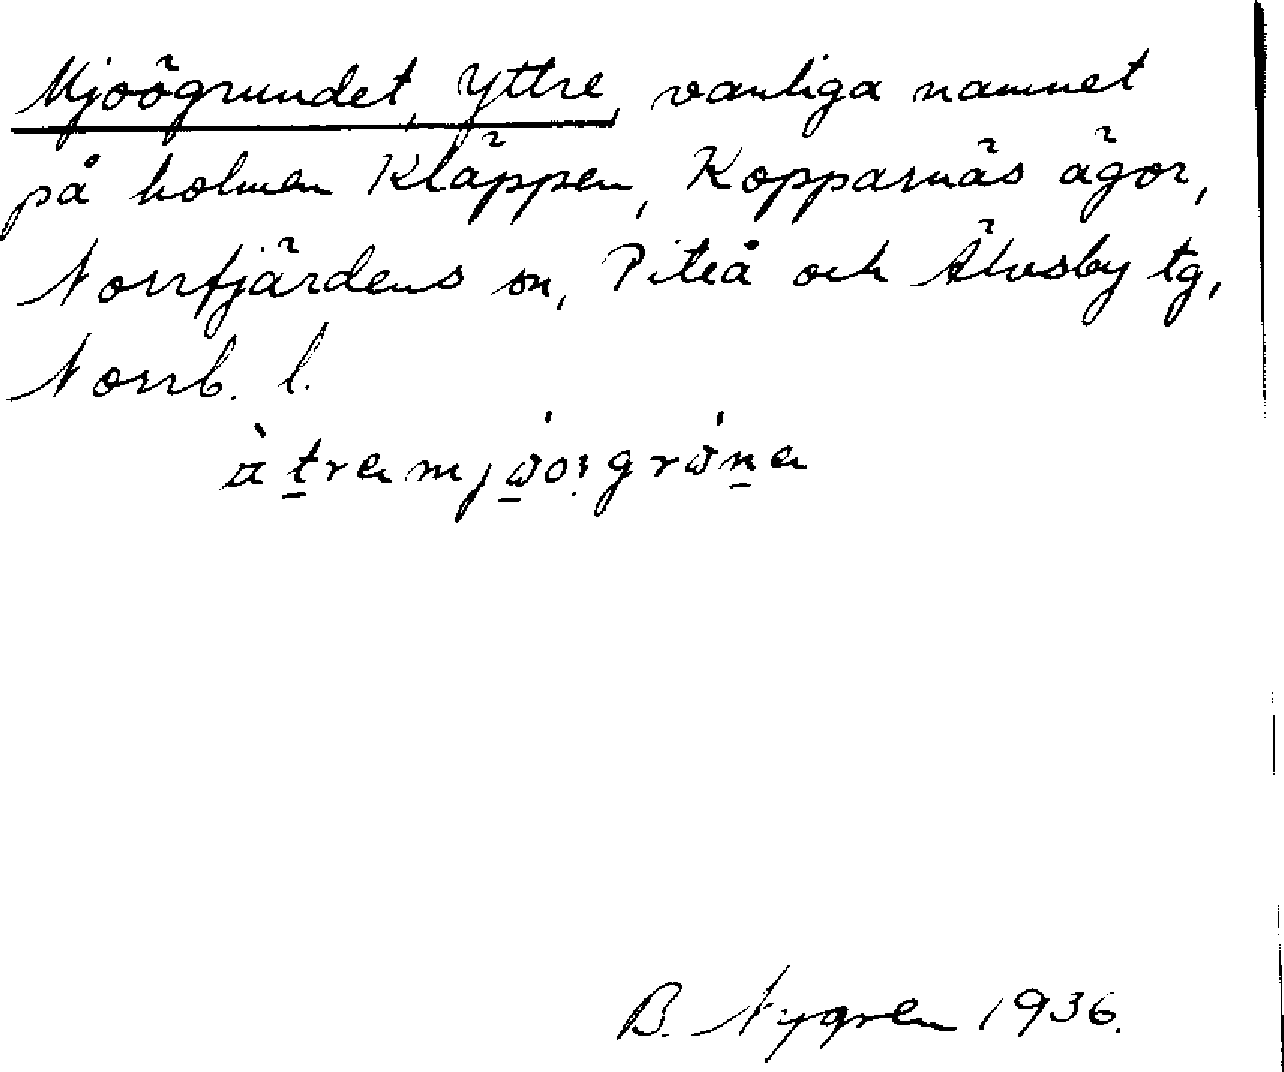 Mjoögrundet, Yttre, vanliga namnet
på holmen Kläppen, Kopparnäs ägor,
Norrfjärdens sn, Piteå och Älvsby tg,
Norrb. l.
B. Nygren 1936.